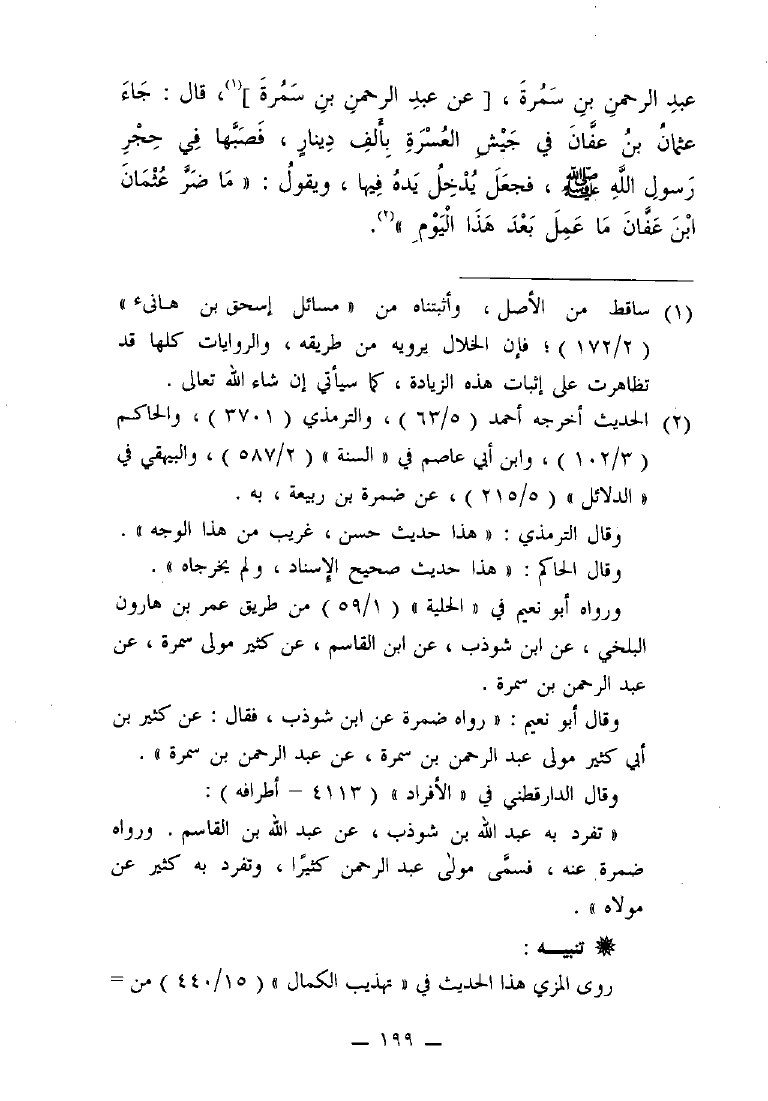 عبدِ الرحمنِ بنِ سَمُرةَ ، [ عن عبدِ الرحمنِ بنِ سَمُرةَ ]<sup>(١)</sup>، قال : جَاءَ
عثمانُ بنُ عفَّانَ في جَيْشِ العُسْرَةِ بِأَلفِ دِينارٍ ، فَصَبَّها فِي حِجْرِ
رَسولِ اللَّهِ ﷺ ، فجعَلَ يُدْخِلُ يَدهُ فِيها ، ويقولُ : « مَا ضَرَّ عُثْمَانَ
ابْنَ عَفَّانَ مَا عَمِلَ بَعْدَ هَذَا الْيَوْمِ »<sup>(٢)</sup>.
(١) ساقط من الأصل ، وأثبتناه من « مسائل إسحق بن هانىء »
( ١٧٢/٢ ) ؛ فإن الخلال يرويه من طريقه ، والروايات كلها قد
تظاهرت على إثبات هذه الزيادة ، كما سيأتي إن شاء الله تعالى .
(٢) الحديث أخرجه أحمد ( ٦٣/٥ ) ، والترمذي ( ٣٧٠١ ) ، والحاكم
( ١٠٢/٣ ) ، وابن أبي عاصم في « السنة » ( ٥٨٧/٢ ) ، والبيهقي في
« الدلائل » ( ٢١٥/٥ ) ، عن ضمرة بن ربيعة ، به .
وقال الترمذي : « هذا حديث حسن ، غريب من هذا الوجه » .
وقال الحاكم : « هذا حديث صحيح الإسناد ، ولم يخرجاه » .
ورواه أبو نعيم في « الحلية » ( ٥٩/١ ) من طريق عمر بن هارون
البلخي ، عن ابن شوذب ، عن ابن القاسم ، عن كثير مولى سمرة ، عن
عبد الرحمن بن سمرة .
وقال أبو نعيم : « رواه ضمرة عن ابن شوذب ، فقال : عن كثير بن
أبي كثير مولى عبد الرحمن بن سمرة ، عن عبد الرحمن بن سمرة » .
وقال الدارقطني في « الأفراد » ( ٤١١٣ – أطرافه ) :
« تفرد به عبد الله بن شوذب ، عن عبد الله بن القاسم . ورواه
ضمرة عنه ، فسمَّى مولى عبد الرحمن كثيرًا ، وتفرد به كثير عن
مولاه » .
❋ تنبيــه :
روى المزي هذا الحديث في « تهذيب الكمال » ( ٤٤٠/١٥ ) من =
— ١٩٩ —